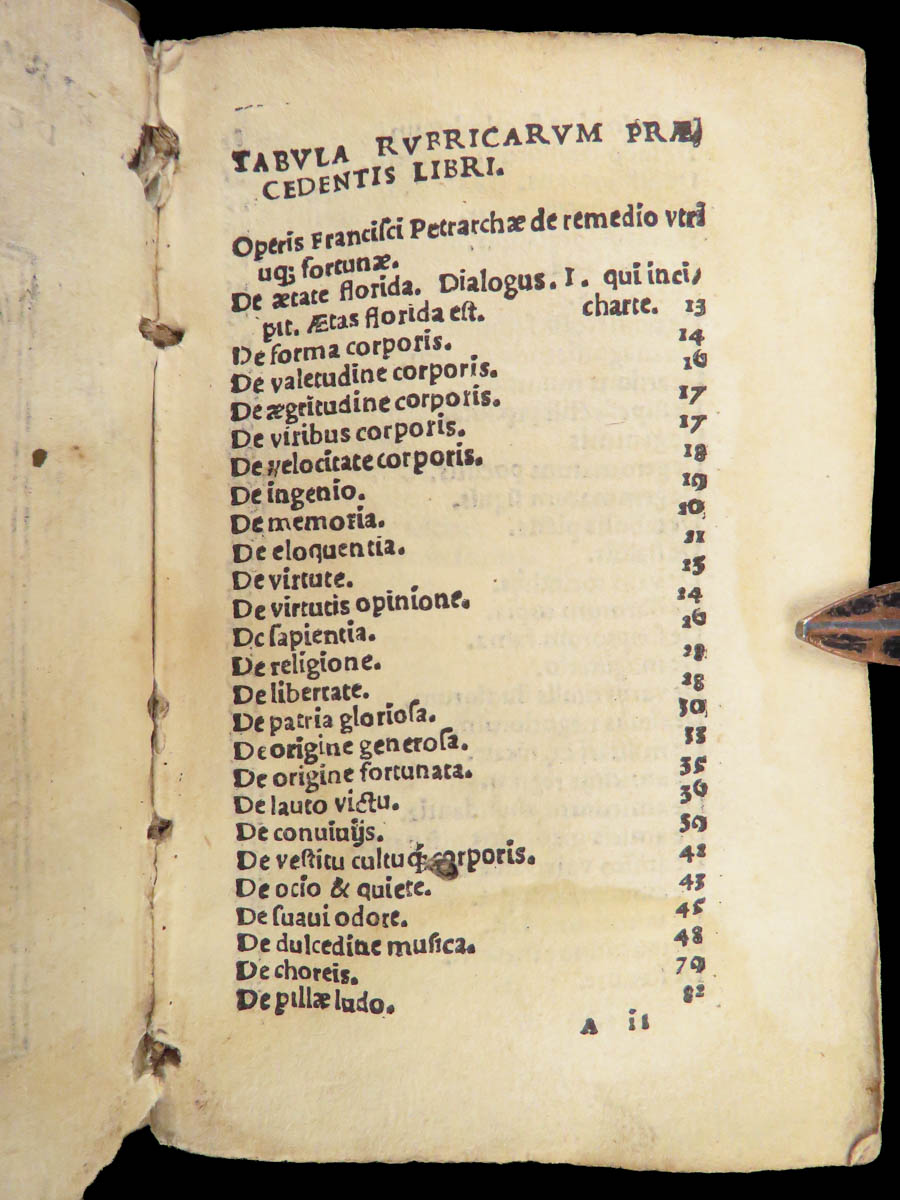 TABVLA RVBRICARVM PRÆ,
CEDENTIS LIBRI.
Operis Francisci Petrarchæ de remedio vtri
uq; fortunæ.
De ætate florida. Dialogus. I. qui inci,
pit. Ætas florida est. charte. 13
De forma corporis. 14
De valetudine corporis. 16
De ægritudine corporis. 17
De viribus corporis. 17
De velocitate corporis. 18
De ingenio. 19
De memoria. 20
De eloquentia. 21
De virtute. 23
De virtutis opinione. 24
De sapientia. 26
De religione. 28
De libertate. 28
De patria gloriosa. 30
De origine generosa. 33
De origine fortunata. 35
De lauto victu. 36
De conuiuijs. 39
De vestitu cultuq; corporis. 42
De ocio & quiete. 43
De suaui odore. 45
De dulcedine musica. 48
De choreis. 79
De pillæ ludo. 82
A ii